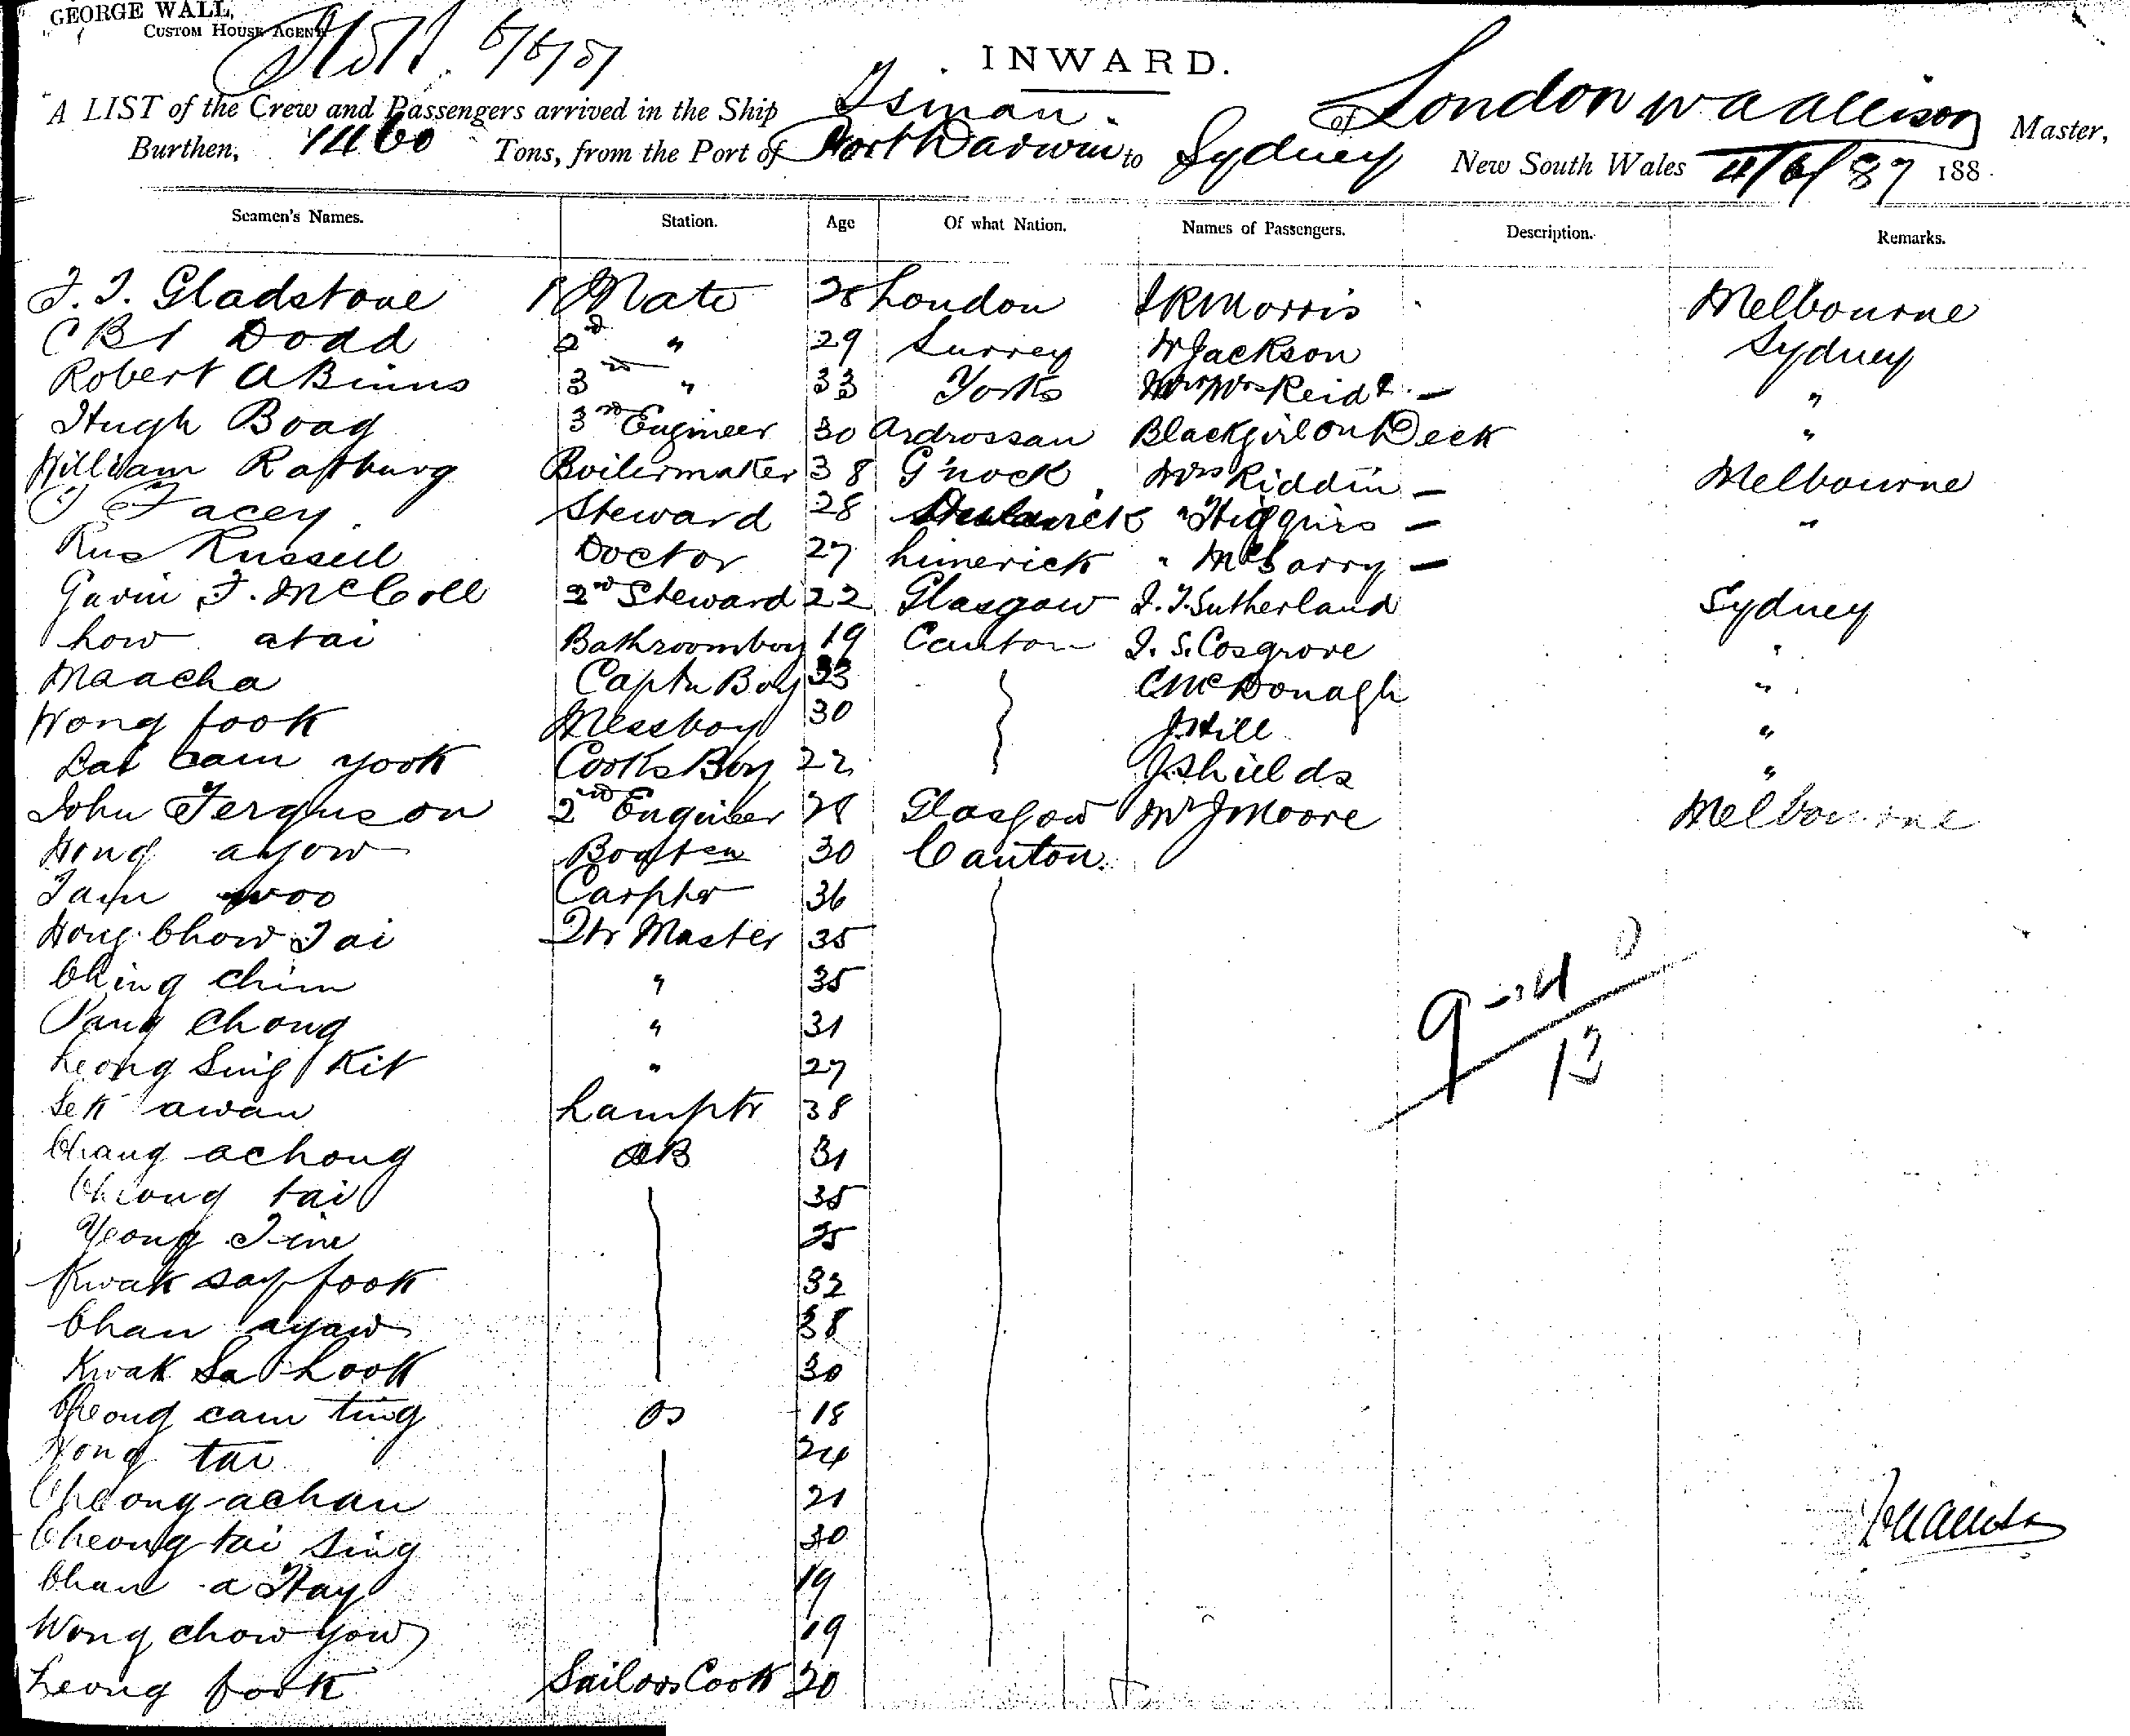 GEORGE WALL,
CUSTOM HOUSE AGENT
INWARD.
A LIST of the Crew and Passengers arrived in the Ship Tsinan of London W A Allison Master,
Burthen, 1460 Tons, from the Port of Port Darwin to Sydney New South Wales 4/6/87 188
Seamen's Names. Station. Age Of what Nation. Names of Passengers. Description. Remarks.
Gladstone 1 Mate 28 London Morris Melbourne
Dodd 2nd " 29 Surrey Jackson Sydney
Robert A Binns 3 " 33 Yorks Reid "
Hugh Boag 3rd Engineer 30 Ardrossan Blackgirl on Deck "
William Boilermaker 38 G'nock Mrs Riddin - Melbourne
Facey Steward 28 " Higgins - "
Russell Doctor 27 Limerick " -
Gavin F. McColl 2nd Steward 22 Glasgow Sutherland Sydney
how atai Bathroomboy 19 Canton Cosgrove "
Maacha Captn Boy C McDonagh "
Wong fook Messboy 30 J Hill "
Lai cam yook Cooks Boy 22 J Shields "
John Ferguson 2nd Engineer Glasgow Mr J Moore Melbourne
ayow 30 Canton
Tam woo Carpter 36
Chow Tai Qtr Master 35
Ching chim " 35
Pang Chong " 31
Leong Sing Kit " 27
Sek awan Lamptr 38
Chang achong AB 31
Cheong tai 35
Yeong 25
Kwak say fook 32
Chan ayaw 38
Kwak Sa Look 30
Cheong cam ting OS 18
Wong tai 24
Cheong achan 21
Cheong tai sing 30
Chan a Hay 19
Wong chow you 19
Leong fook Sailors Cook 20